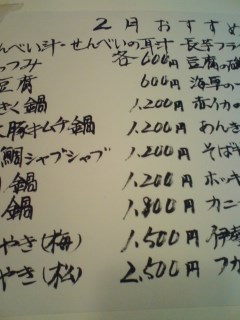 2月おすすめ
んべい汁-せんべいの耳汁 長芋フラ
っつみ 各600円 豆腐の
豆腐 600円 海草の
きく鍋 1,200円 赤イカ
豚キムチ鍋 1,200円 あんき
鯛シャブシャブ 1,200円 そば
鍋 1,200円 ホッキ
鍋 1,800円 カニ
やき(梅) 1,500円 伊勢
やき(松) 2,500円 フカ